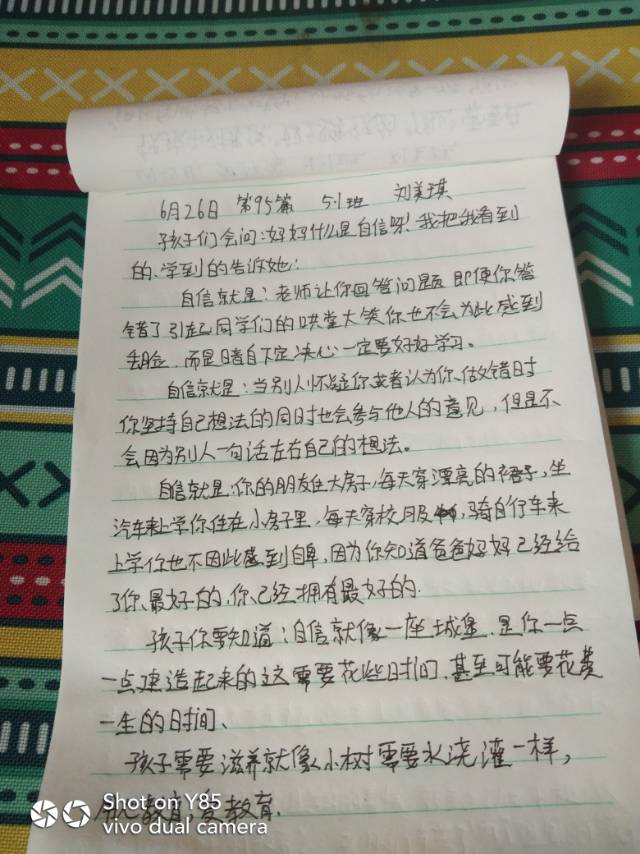 6月26日 第95篇 5.1班 刘美琪
孩子们会问:妈妈什么是自信呀!我把我看到
的、学到的告诉她:
自信就是:老师让你回答问题 即使你答
错了引起同学们的哄堂大笑你也不会为此感到
丢脸,而是暗自下定决心一定要好好学习。
自信就是:当别人怀疑你或者认为你、做错时
你坚持自己想法的同时也会参与他人的意见,但是不
会因为别人一句话左右自己的想法。
自信就是:你的朋友住大房子,每天穿漂亮的裙子,坐
汽车来上学你住在小房子里,每天穿校服,骑自行车来
上学你也不因此感到自卑,因为你知道爸爸妈妈已经给
了你最好的,你已经拥有最好的.
孩子你要知道:自信就像一座城堡,是你一点
一点建造起来的这需要花些时间,甚至可能要花费
一生的时间、
孩子需要滋养就像小树需要水浇灌一样,
教育,爱教育.
Shot on Y85
vivo dual camera